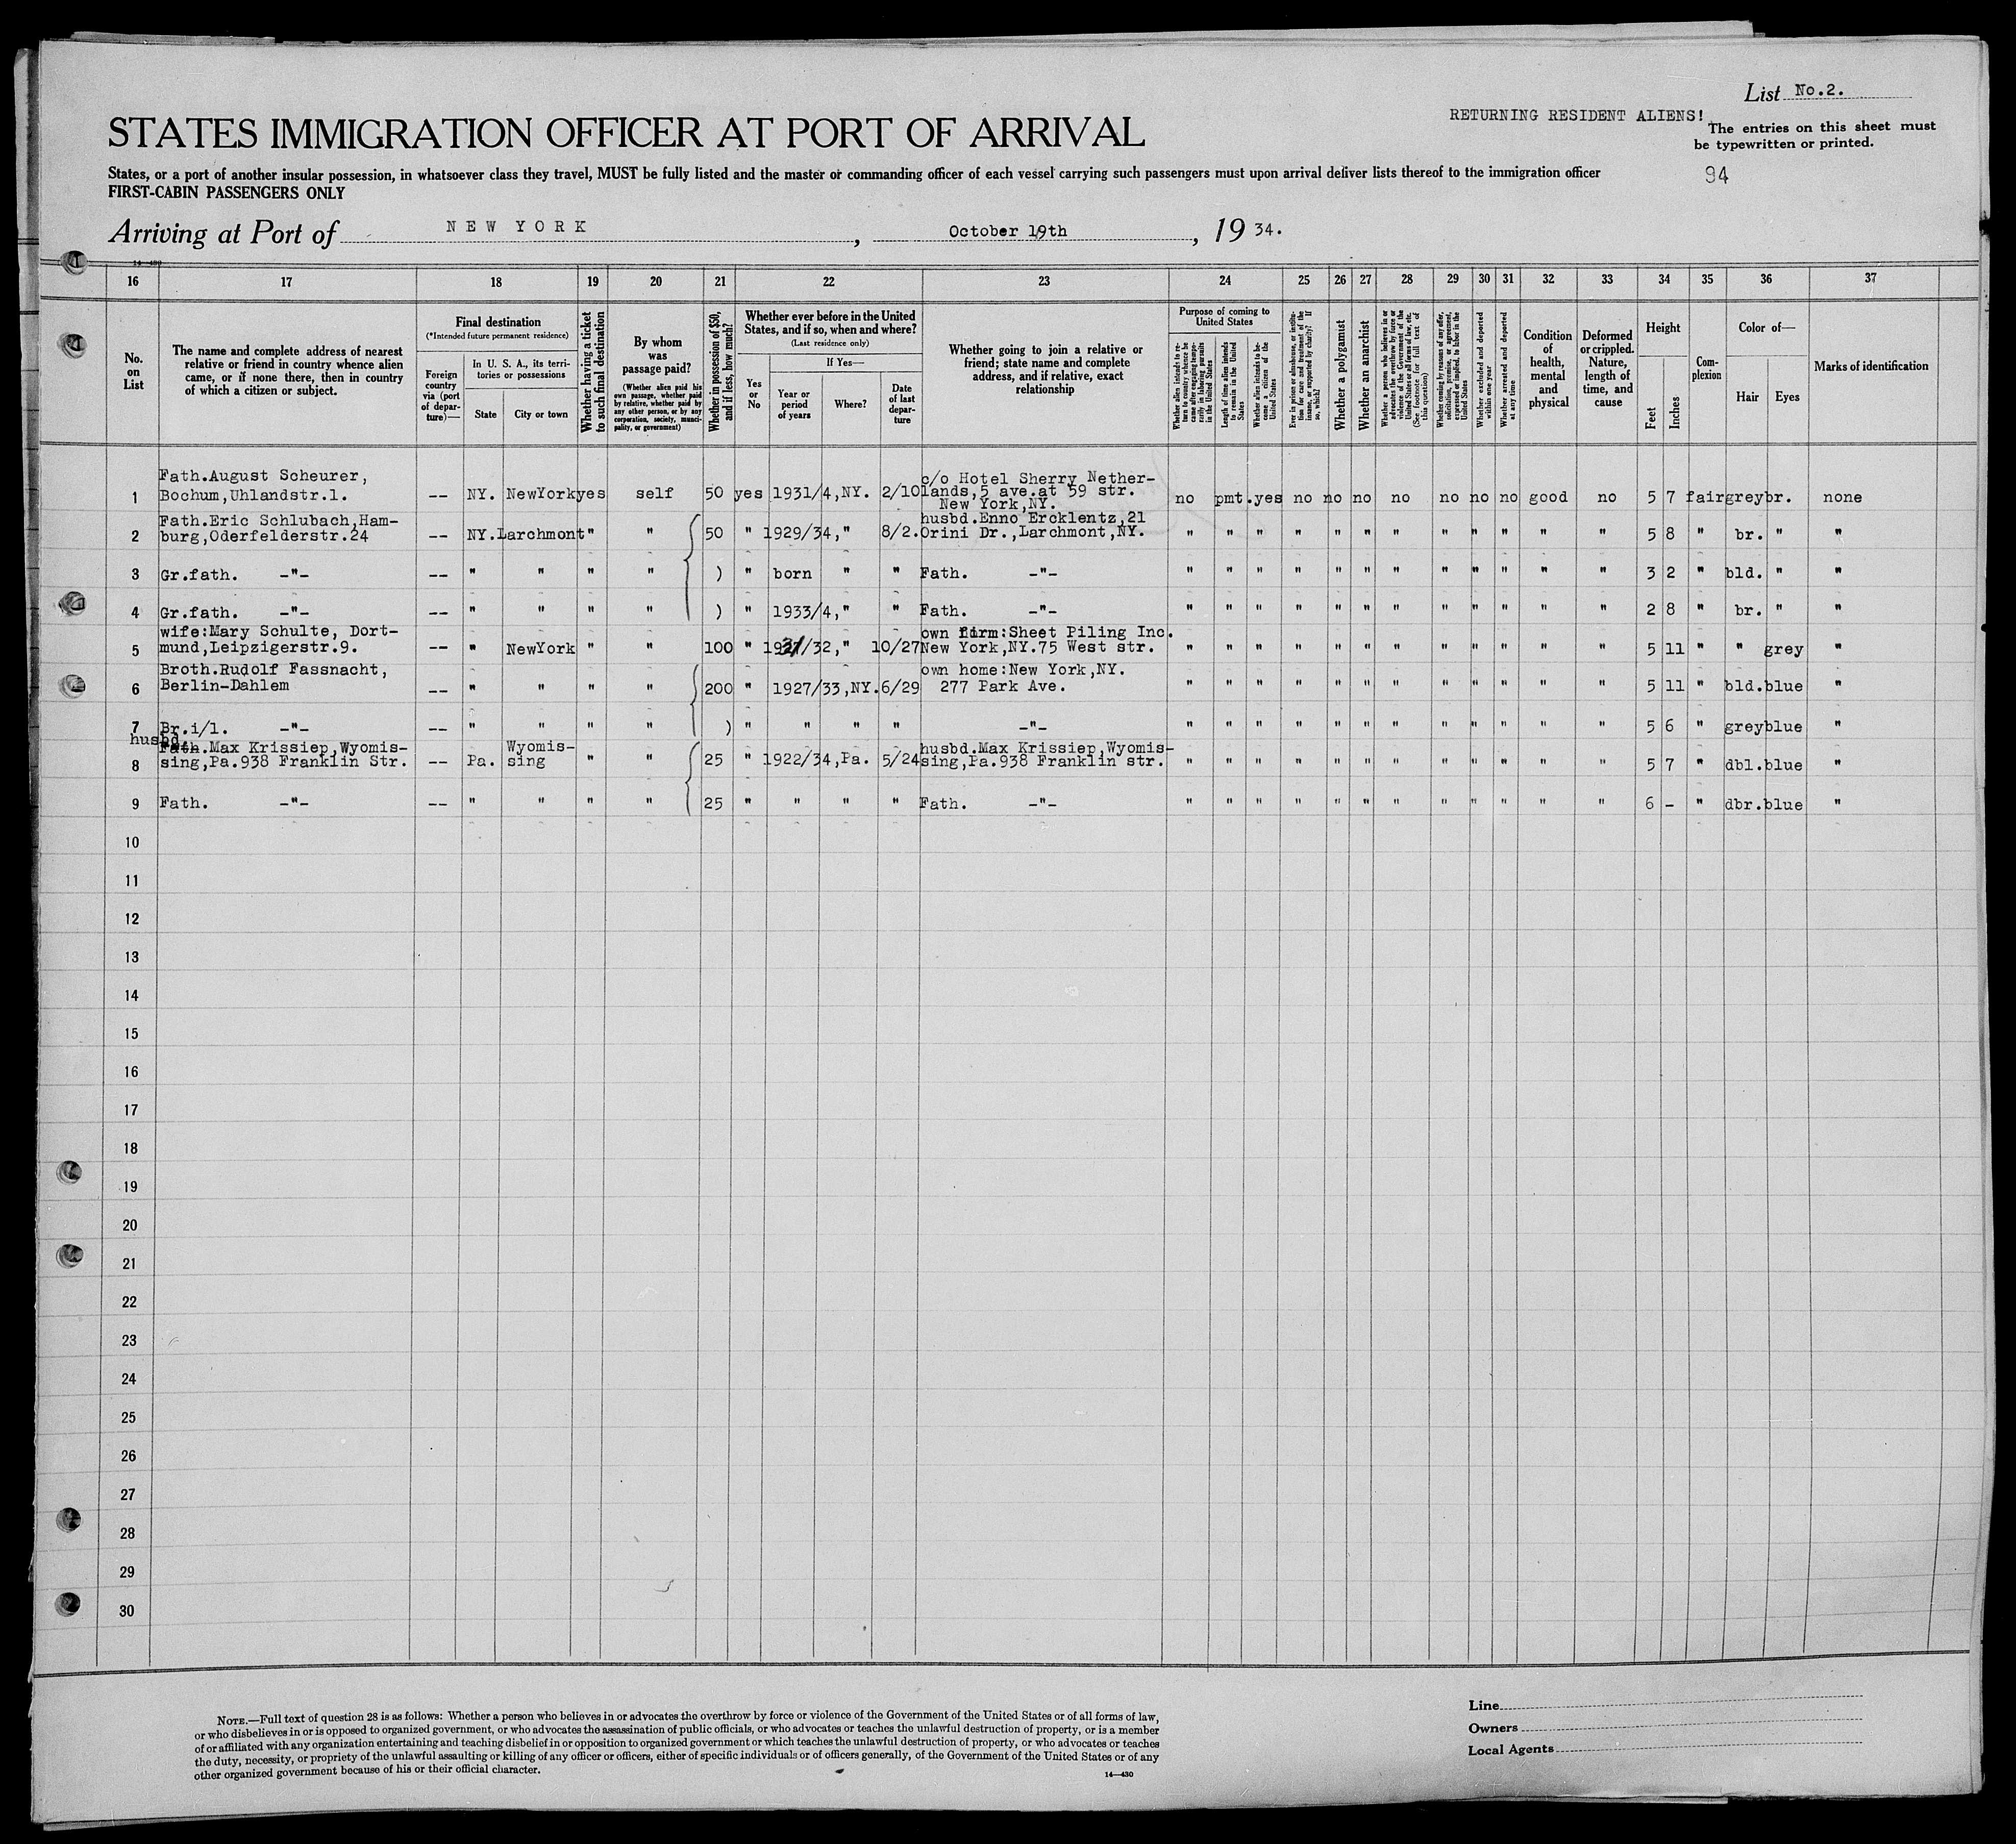 List No.2.
RETURNING RESIDENT ALIENS!
The entries on this sheet must
be typewritten or printed.
94
STATES IMMIGRATION OFFICER AT PORT OF ARRIVAL
States, or a port of another insular possession, in whatsoever class they travel, MUST be fully listed and the master or commanding officer of each vessel carrying such passengers must upon arrival deliver lists thereof to the immigration officer
FIRST-CABIN PASSENGERS ONLY
Arriving at Port of NEW YORK, October 19th, 19 34.
14—430
16 17 18 19 20 21 22 23 24 25 26 27 28 29 30 31 32 33 34 35 36 37
No. on List
The name and complete address of nearest relative or friend in country whence alien came, or if none there, then in country of which a citizen or subject.
Final destination
(*Intended future permanent residence)
Foreign country via (port of departure)—
In U. S. A., its territories or possessions
State
City or town
Whether having a ticket to such final destination
By whom was passage paid?
(Whether alien paid his own passage, whether paid by relative, whether paid by any other person, or by any corporation, society, municipality, or government)
Whether in possession of $50, and if less, how much?
Whether ever before in the United States, and if so, when and where?
(Last residence only)
Yes or No
If Yes—
Year or period of years
Where?
Date of last departure
Whether going to join a relative or friend; state name and complete address, and if relative, exact relationship
Purpose of coming to United States
Whether alien intends to return to country whence he came after engaging temporarily in laboring pursuits in the United States
Length of time alien intends to remain in the United States
Whether alien intends to become a citizen of the United States
Ever in prison or almshouse, institution for care and treatment of the insane, or supported by charity? If so, which?
Whether a polygamist
Whether an anarchist
Whether a person who believes in or advocates the overthrow by force or violence of the Government of the United States or all forms of law, etc. (See footnote for full text of this question)
Whether coming by reasons of any offer, solicitation, promise, or agreement, expressed or implied, to labor in the United States
Whether excluded and deported within one year
Whether arrested and deported at any time
Condition of health, mental and physical
Deformed or crippled. Nature, length of time, and cause
Height
Feet
Inches
Complexion
Color of—
Hair
Eyes
Marks of identification
Fath.August Scheurer,
1 Bochum,Uhlandstr.1. -- NY. NewYork yes self 50 yes 1931/4,NY. 2/10 c/o Hotel Sherry Nether-
lands,5 ave.at 59 str.
New York,NY. no pmt. yes no no no no no no no good no 5 7 fair grey br. none
Fath.Eric Schlubach,Ham-
2 burg,Oderfelderstr.24 -- NY. Larchmont " " 50 " 1929/34," 8/2. husbd.Enno Ercklentz,21
Orini Dr.,Larchmont,NY. " " " " " " " " " " " " 5 8 " br. " "
3 Gr.fath. -"- -- " " " " ) " born " " Fath. -"- " " " " " " " " " " " " 3 2 " bld. " "
4 Gr.fath. -"- -- " " " " ) " 1933/4," " Fath. -"- " " " " " " " " " " " " 2 8 " br. " "
wife:Mary Schulte, Dort-
5 mund,Leipzigerstr.9. -- " NewYork " " 100 " 1931/32," 10/27 own firm:Sheet Piling Inc.
New York,NY.75 West str. " " " " " " " " " " " " 5 11 " " grey "
Broth.Rudolf Fassnacht,
6 Berlin-Dahlem -- " " " " 200 " 1927/33,NY. 6/29 own home:New York,NY.
277 Park Ave. " " " " " " " " " " " " 5 11 " bld. blue "
7 Br.i/l. -"- -- " " " " ) " " " " -"- " " " " " " " " " " " " 5 6 " grey blue "
husbd.
Fath.Max Krissiep,Wyomis-
8 sing,Pa.938 Franklin Str. -- Pa. Wyomis-
sing " " 25 " 1922/34,Pa. 5/24 husbd.Max Krissiep,Wyomis-
sing,Pa.938 Franklin str. " " " " " " " " " " " " 5 7 " dbl. blue "
9 Fath. -"- -- " " " " 25 " " " " Fath. -"- " " " " " " " " " " " " 6 - " dbr. blue "
10
11
12
13
14
15
16
17
18
19
20
21
22
23
24
25
26
27
28
29
30
NOTE.—Full text of question 28 is as follows: Whether a person who believes in or advocates the overthrow by force or violence of the Government of the United States or of all forms of law,
or who disbelieves in or is opposed to organized government, or who advocates the assassination of public officials, or who advocates or teaches the unlawful destruction of property, or is a member
of or affiliated with any organization entertaining and teaching disbelief in or opposition to organized government or which teaches the unlawful destruction of property, or who advocates or teaches
the duty, necessity, or propriety of the unlawful assaulting or killing of any officer or officers, either of specific individuals or of officers generally, of the Government of the United States or of any
other organized government because of his or their official character.
14—430
Line
Owners
Local Agents